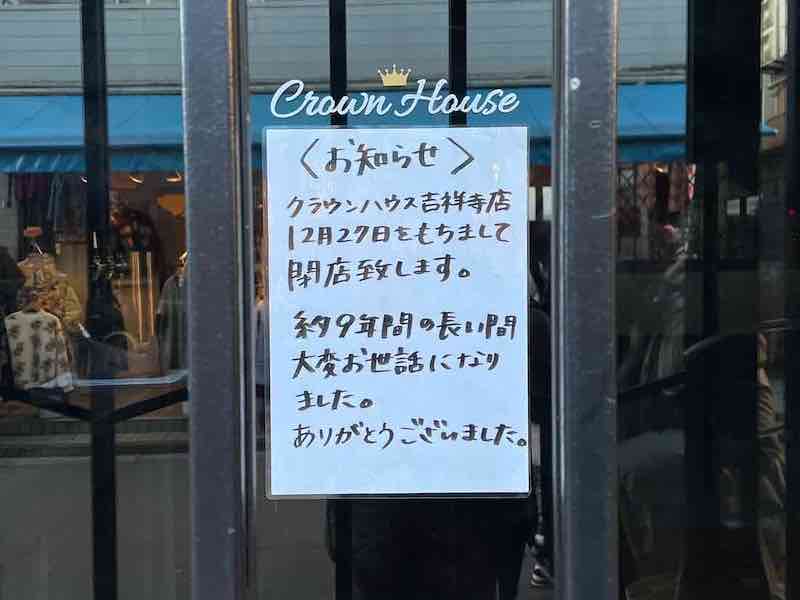 Crown House
〈お知らせ〉
クラウンハウス吉祥寺店
12月27日をもちまして
閉店致します。
約9年間の長い間
大変お世話になり
ました。
ありがとうございました。